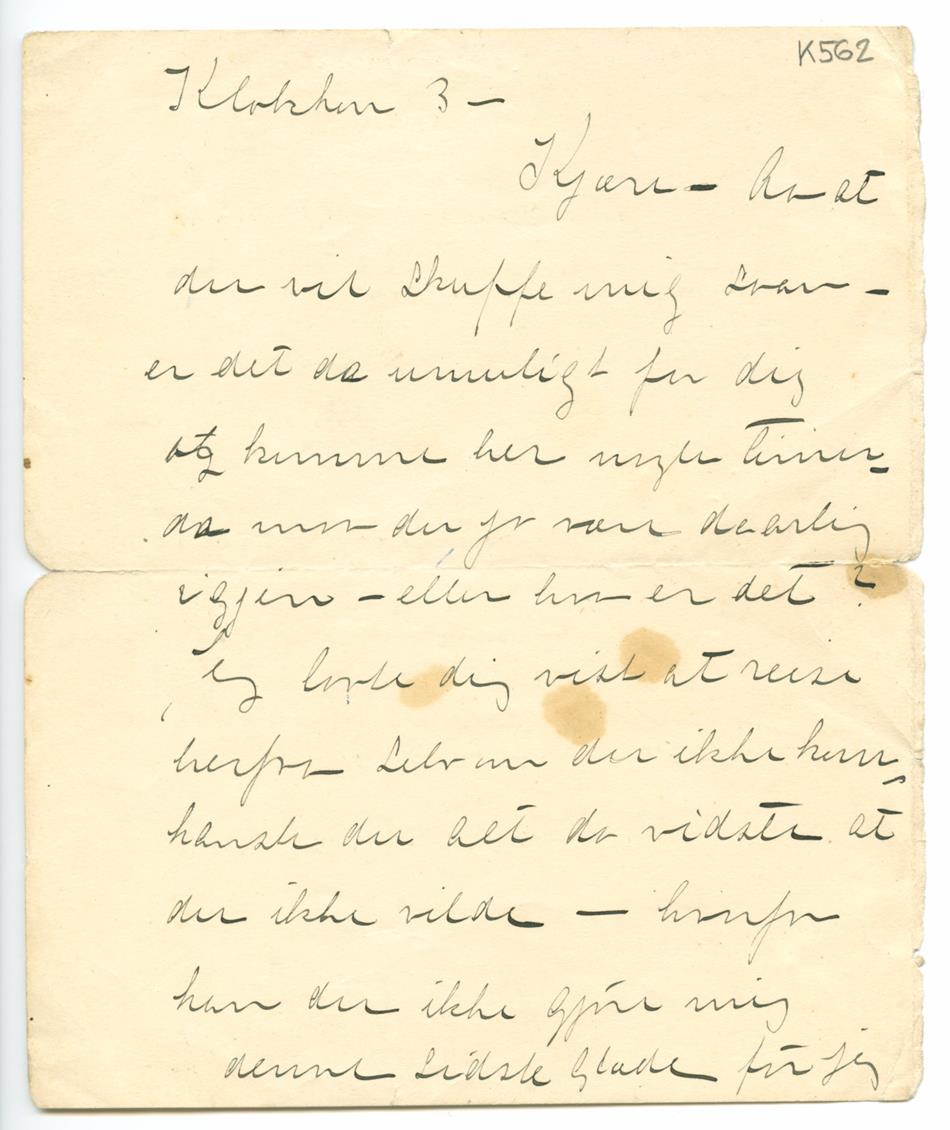 K562
Klokken 3 –
Kjære – Aa at
du vil skuffe mig saa –
er det da umuligt for dig
at komme her nogle timer –
da maa du jo være daarlig
igjen – eller hva er det?
Jeg lovte dig vist at reise
herfra selv om du ikke kom,
kanske du alt da vidste at
du ikke vilde – hvorfor
kan du ikke gjøre mig
denne sidste Glæde før jeg